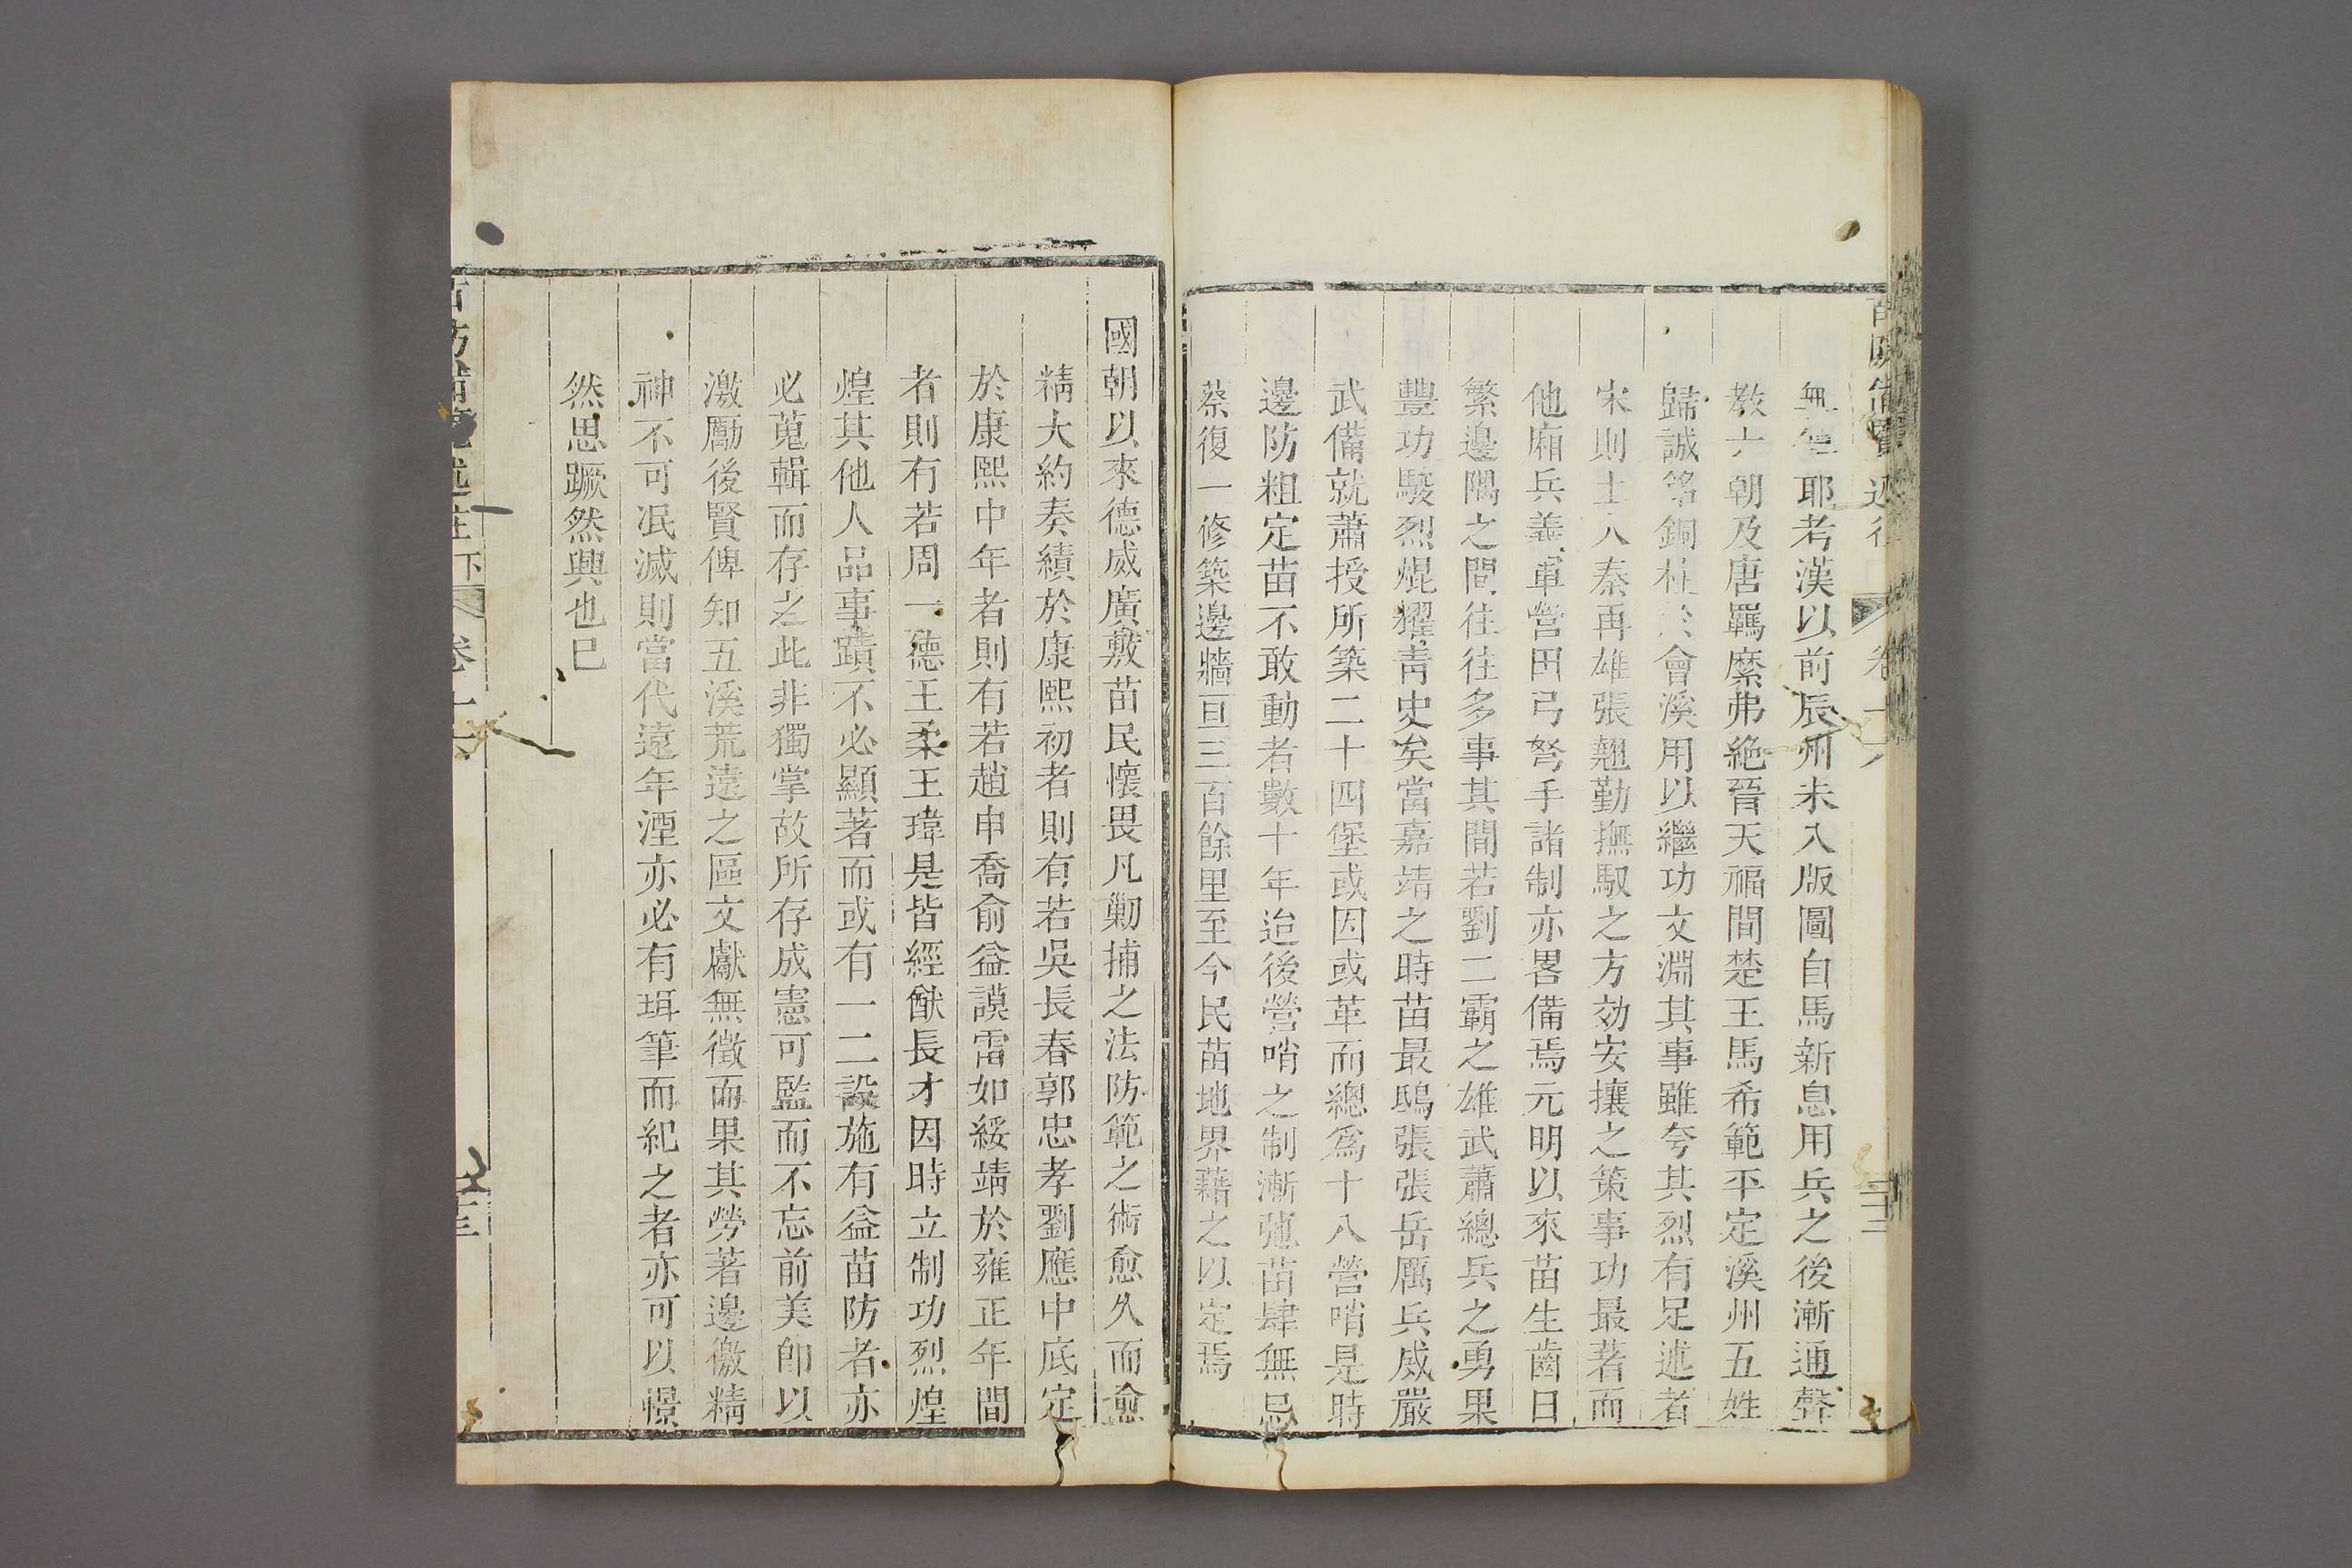 無傳耶考漢以前辰州未入版圖自馬新息用兵之後漸通聲
教六朝及唐羈縻弗絶晉天福間楚王馬希範平定溪州五姓
歸誠銘銅柱於會溪用以繼功文淵其事雖夸其烈有足述者
宋則土人秦再雄張翹勤撫馭之方効安攘之策事功最著而
他廂兵義軍營田弓弩手諸制亦畧備焉元明以來苗生齒日
繁邊隅之間往往多事其間若劉二霸之雄武蕭總兵之勇果
豐功駿烈焜耀靑史矣當嘉靖之時苗最鴟張張岳厲兵威嚴
武備就蕭授所築二十四堡或因或革而總爲十八營哨是時
邊防粗定苗不敢動者數十年迨後營哨之制漸弛苗肆無忌
蔡復一修築邊牆亘三百餘里至今民苗地界藉之以定焉
國朝以來德威廣敷苗民懷畏凡勦捕之法防範之術愈久而愈
精大約奏績於康熙初者則有若吳長春郭忠孝劉應中底定
於康熙中年者則有若趙申喬俞益謨雷如綏靖於雍正年間
者則有若周一德王柔王瑋是皆經猷長才因時立制功烈煌
煌其他人品事蹟不必顯著而或有一二設施有益苗防者亦
必蒐輯而存之此非獨掌故所存成憲可監而不忘前美卽以
激勵後賢俾知五溪荒遠之區文獻無徵而果其勞著邊徼精
神不可泯滅則當代遠年湮亦必有珥筆而紀之者亦可以憬
然思蹶然興也已